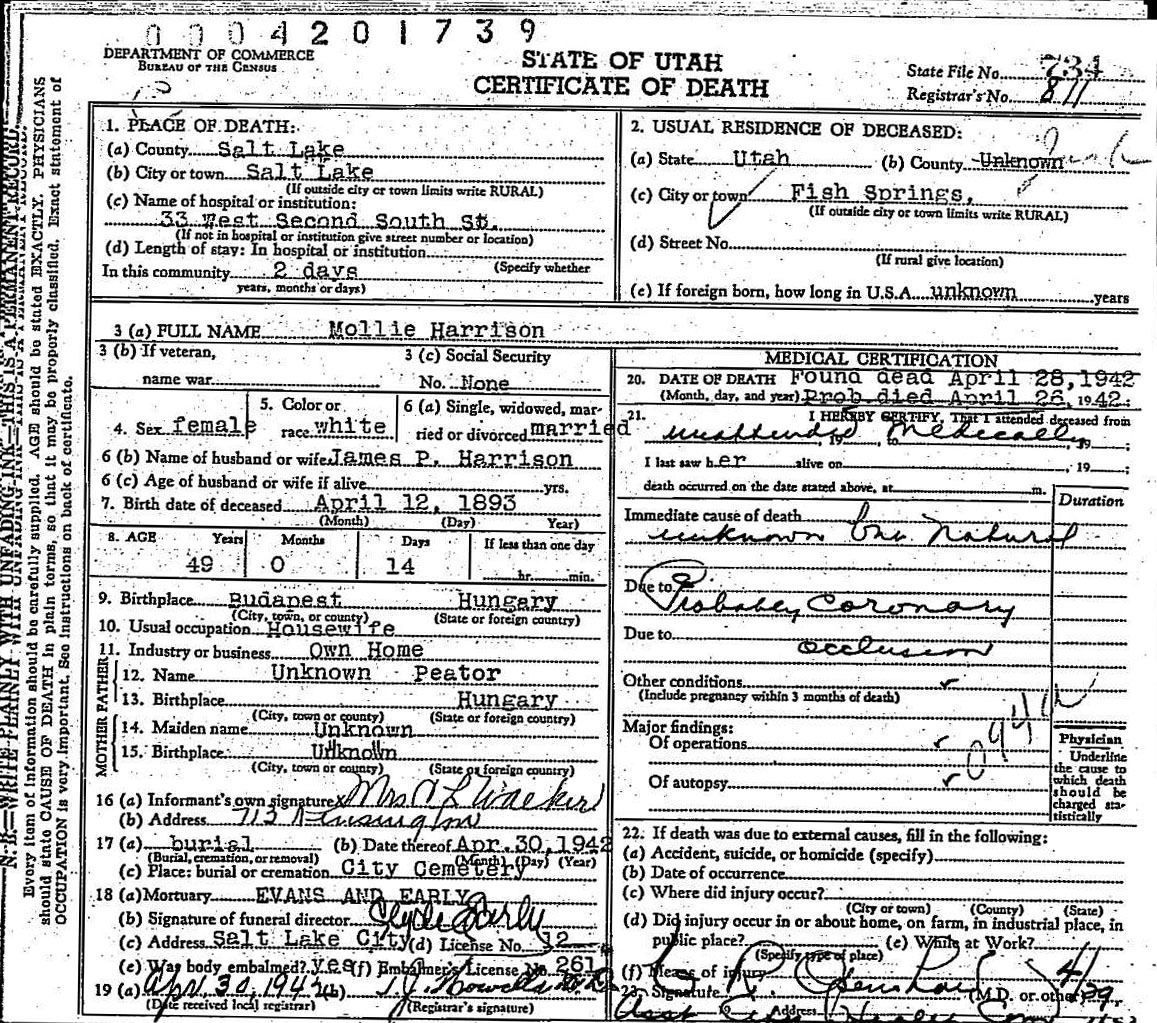 0004201739
DEPARTMENT OF COMMERCE
BUREAU OF THE CENSUS
STATE OF UTAH
CERTIFICATE OF DEATH
State File No. 734
Registrar's No. 811
N. B.—WRITE PLAINLY WITH UNFADING INK—THIS IS A PERMANENT RECORD.
Every item of information should be carefully supplied. AGE should be stated EXACTLY. PHYSICIANS
should state CAUSE OF DEATH in plain terms, so that it may be properly classified. Exact statement of
OCCUPATION is very important. See instructions on back of certificate.
1. PLACE OF DEATH:
(a) County Salt Lake
(b) City or town Salt Lake
(If outside city or town limits write RURAL)
(c) Name of hospital or institution:
33 West Second South St.
(If not in hospital or institution give street number or location)
(d) Length of stay: In hospital or institution
(Specify whether
In this community 2 days
years, months or days)
2. USUAL RESIDENCE OF DECEASED:
(a) State Utah (b) County Unknown
(c) City or town Fish Springs,
(If outside city or town limits write RURAL)
(d) Street No.
(If rural give location)
(e) If foreign born, how long in U.S.A. unknown years
3 (a) FULL NAME Mollie Harrison
3 (b) If veteran, 3 (c) Social Security
name war No. None
4. Sex female 5. Color or race white 6 (a) Single, widowed, married or divorced married
6 (b) Name of husband or wife James P. Harrison
6 (c) Age of husband or wife if alive yrs.
7. Birth date of deceased April 12, 1893
(Month) (Day) Year)
8. AGE Years Months Days If less than one day
49 0 14 hr. min.
9. Birthplace Budapest Hungary
(City, town, or county) (State or foreign country)
10. Usual occupation Housewife
11. Industry or business Own Home
FATHER
12. Name Unknown Peator
13. Birthplace Hungary
(City, town or county) (State or foreign country)
MOTHER
14. Maiden name Unknown
15. Birthplace Unknown
(City, town or county) (State or foreign country)
16 (a) Informant's own signature x Mrs A L Walker
(b) Address 713 Kensington
17 (a) burial (b) Date thereof Apr. 30, 1942
(Burial, cremation, or removal) (Month) (Day) (Year)
(c) Place: burial or cremation City Cemetery
18 (a) Mortuary EVANS AND EARLY
(b) Signature of funeral director Clyde Early
(c) Address Salt Lake City (d) License No. 12
(e) Was body embalmed? yes (f) Embalmer's License No. 261
19 (a) Apr. 30, 1942 (b) T. J. Howells
(Date received local registrar) (Registrar's signature)
MEDICAL CERTIFICATION
20. DATE OF DEATH Found dead April 28, 1942
(Month, day, and year) Prob. died April 26, 1942:
21. I HEREBY CERTIFY, That I attended deceased from
unattended 19 to Medically 19 ;
I last saw her alive on , 19 ;
death occurred on the date stated above, at m.
Duration
Immediate cause of death
unknown but Natural
Due to Probably Coronary
Due to occlusion
Other conditions
(Include pregnancy within 3 months of death)
Major findings:
Of operations
Of autopsy
Physician
Underline
the cause to
which death
should be
charged sta-
tistically
22. If death was due to external causes, fill in the following:
(a) Accident, suicide, or homicide (specify)
(b) Date of occurrence
(c) Where did injury occur?
(City or town) (County) (State)
(d) Did injury occur in or about home, on farm, in industrial place, in
public place? (e) While at Work?
(Specify type of place)
(f) Means of injury
23. Signature (M.D. or other)
Address